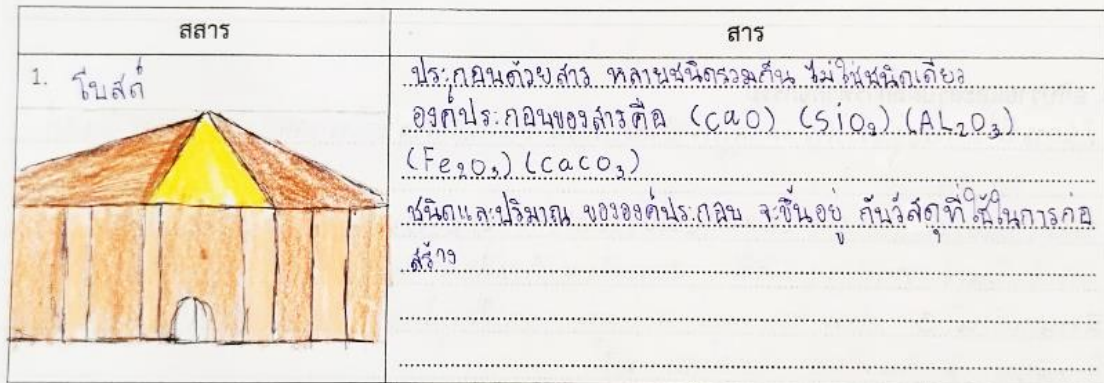 สสาร
สาร
1. โบสถ์
ประกอบด้วยสาร หลายชนิดรวมกัน ไม่ใช่ชนิดเดียว
องค์ประกอบของสารคือ (CaO) (SiO₂) (AL₂O₃)
(Fe₂O₃) (CaCO₃)
ชนิดและปริมาณ ขององค์ประกอบ จะขึ้นอยู่ กับวัสดุที่ใช้ในการก่อ
สร้าง